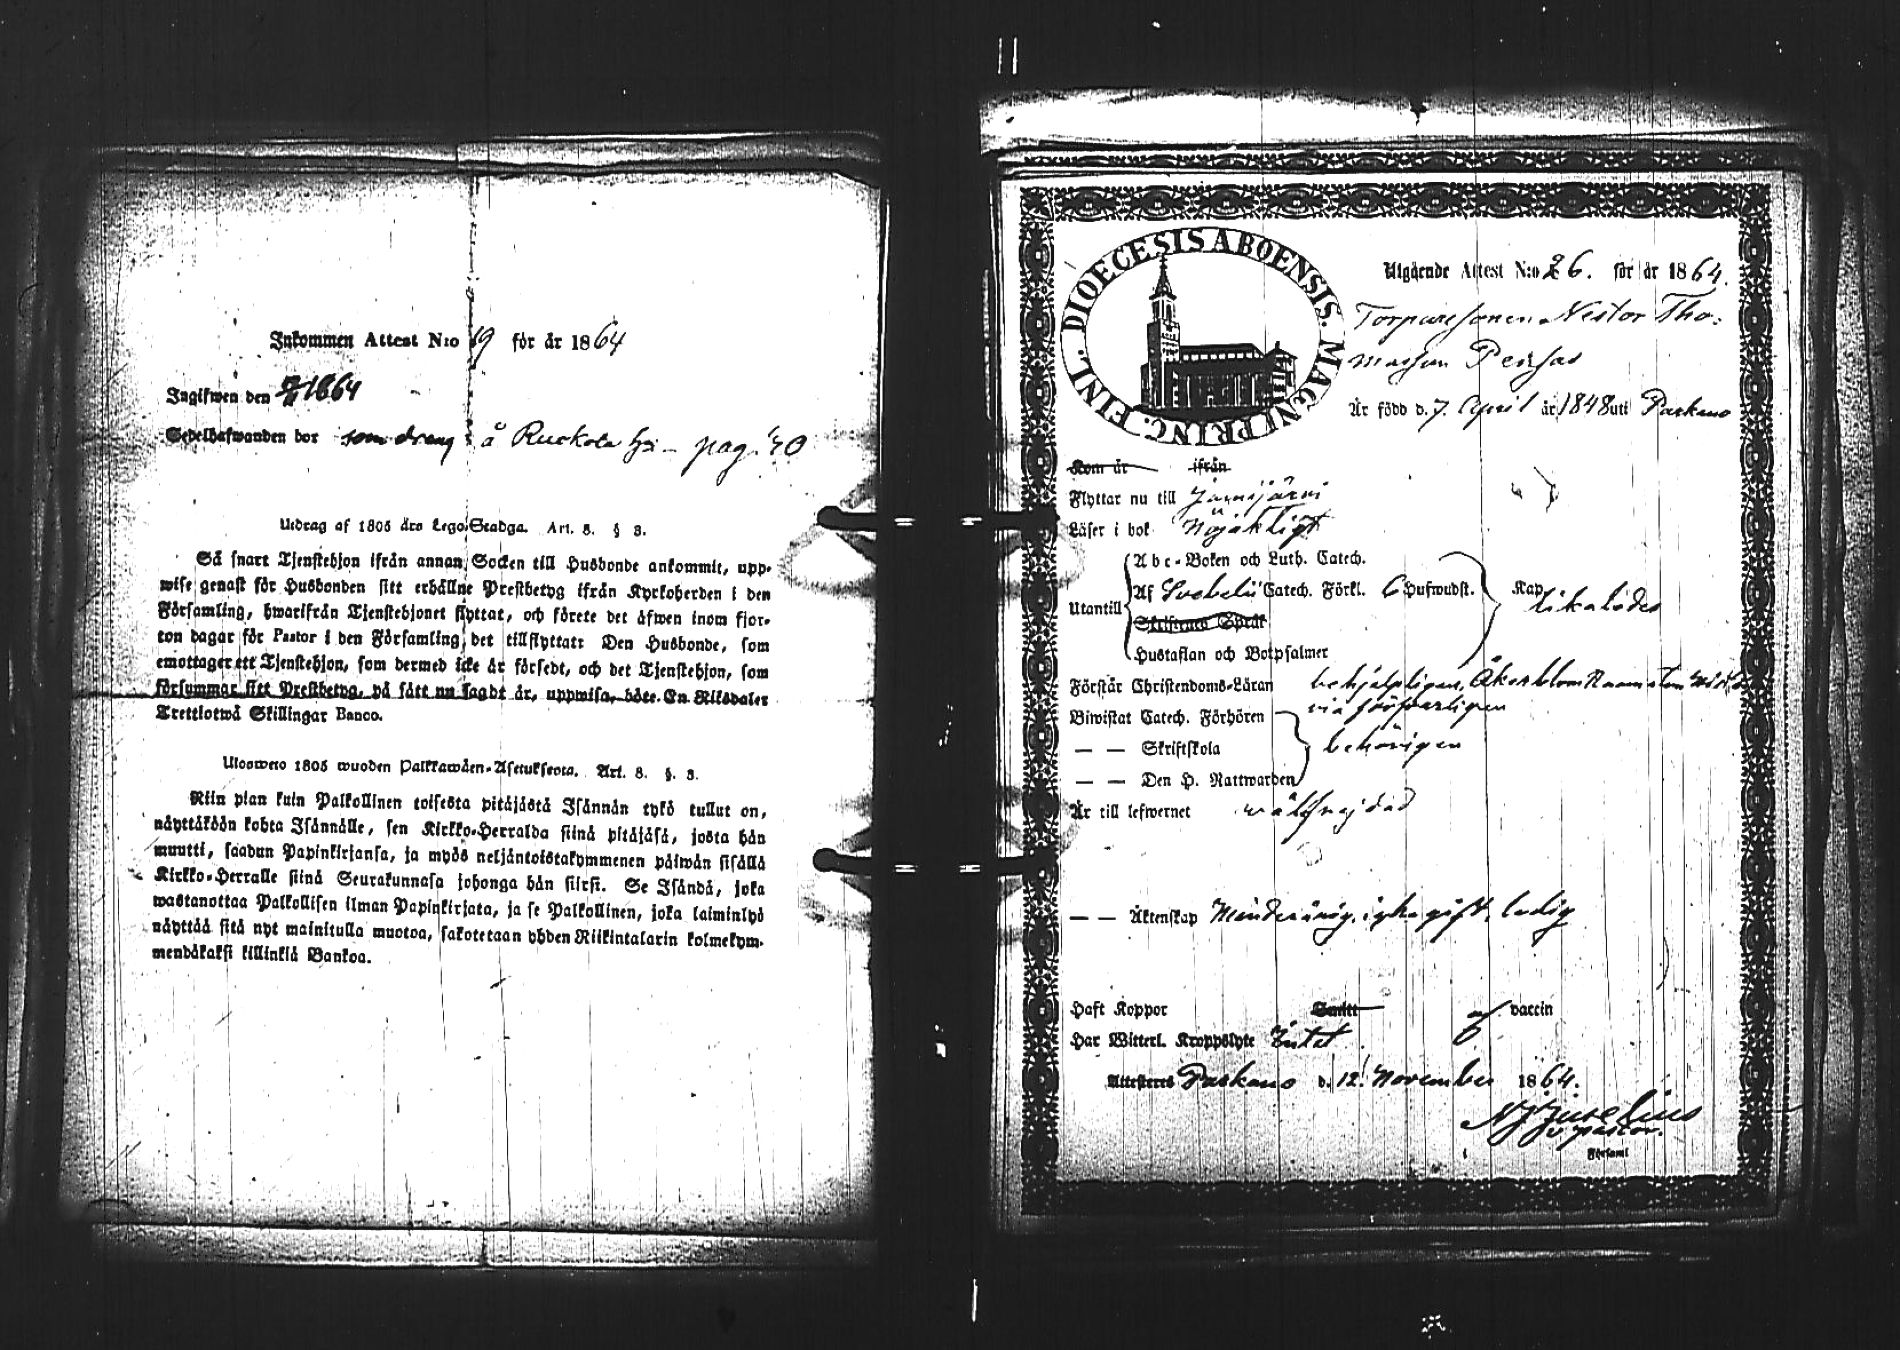 Inkommen Attest N:o 19 för år 1864
Ingifwen den 1864
Sedelhafwanden bor som dreng å Ruckola pag. 40
Utdrag af 1805 års Lego-Stadga. Art. 8. § 3.
Så snart Tjenstehjon ifrån annan Socken till Husbonde ankommit, upp-
wise genast för Husbonden sitt erhållne Prestbetyg ifrån Kyrkoherden i den
Församling, hwarifrån Tjenstehjonet flyttat, och förete det äfwen inom fjor-
ton dagar för Pastor i den Församling det tillflyttat: Den Husbonde, som
emottager ett Tjenstehjon, som dermed icke är försedt, och det Tjenstehjon, som
försummar sitt Prestbetyg, på sätt nu sagdt är, uppwisa, böte En Riksdaler
Trettiotwå Skillingar Banco.
Uloswoto 1805 wuoden Palkkawäen-Asetuksesta. Art. 8. §. 3.
Niin pian kuin Palkollinen toisesta pitäjästä Isännän tykö tullut on,
näyttäköön kohta Isännälle, sen Kirkko-Herralda siinä pitäjäsä, josta hän
muutti, saadun Papinkirjansa, ja myös neljäntoistakymmenen päiwän sisällä
Kirkko-Herralle siinä Seurakunnasa johonga hän siirsi. Se Isändä, joka
wastanottaa Palkollisen ilman Papinkirjata, ja se Palkollinen, joka laiminlyö
näyttää sitä nyt mainitulla muotoa, sakotetaan yhden Riikintalarin kolmekym-
mendäkaksi killinkiä Bankoa.
DIOECESIS ABOENSIS. MAGNI PRINC. FINL.
Utgående Attest N:o 26. för år 1864.
Torparesonen Nestor Tho-
masson Pensas
Är född d. 7. April år 1848 uti Parkano
Kom år ifrån
Flyttar nu till Jämijärvi
Läser i bok Nöjaktigt
Utantill
Abc-Boken och Luth. Catech.
Af Svebelii Catech. Förkl. 6 Hufwudst. Kap.
likaledes
Skriftenes Språk
Hustaflan och Botpsalmer
Förstår Christendoms-Läran behjelpligen.
Biwistat Catech. Förhören
— — Skriftskola behörigen
— — Den H. Nattwarden
Är till lefwernet wälfrejdad
— — Äktenskap Minderårig, icke gift, ledig
Haft Koppor Smitt af vaccin
Har Witterl. Kroppslyte Intet
Attesteras Parkano d. 12. November 1864.
v. pastor.
i Församl